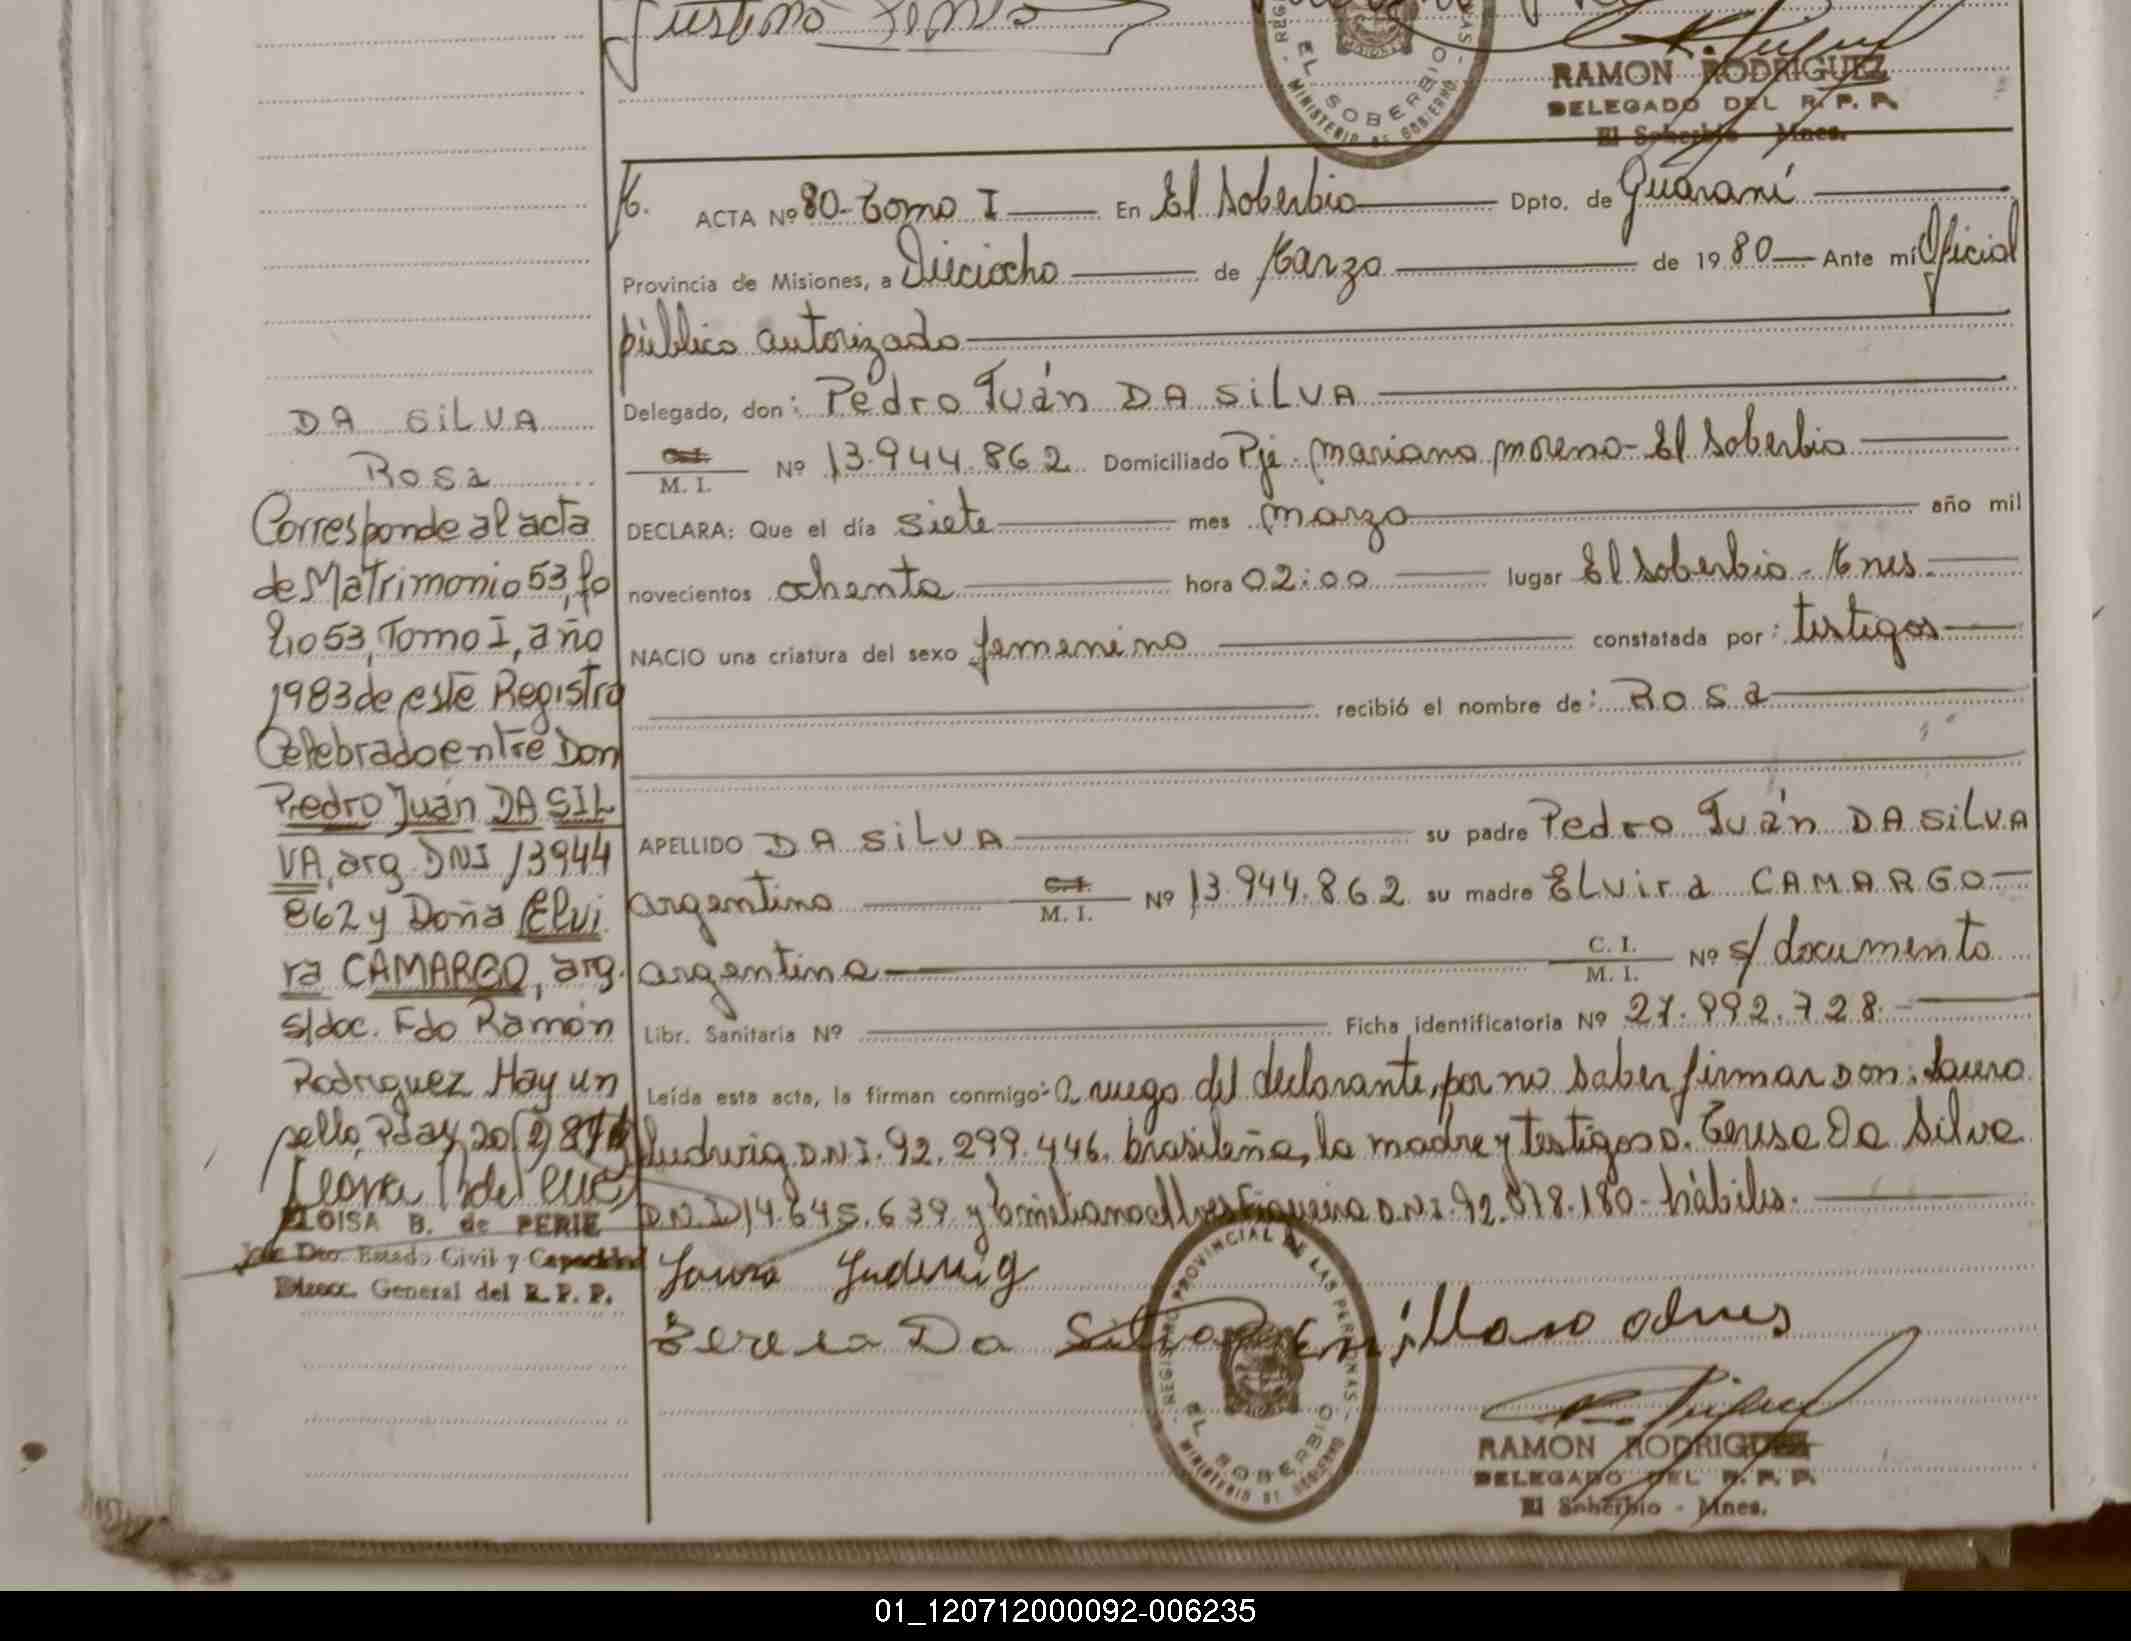 RAMON RODRIGUEZ
DELEGADO DEL R. P. P.
El Soberbio Mnes.
EL SOBERBIO
MINISTERIO DE GOBIERNO
ACTA Nº 80 - Tomo I En El Soberbio Dpto. de Guaraní
Provincia de Misiones, a Dieciocho de Marzo de 1980 Ante mí Oficial
público autorizado
Delegado, don: Pedro Juán DA SILVA
C.I. M. I. Nº 13.944.862 Domiciliado Pje. Mariano Moreno - El Soberbio
DECLARA: Que el día siete mes marzo año mil
novecientos ochenta hora 02:00 lugar El Soberbio - Mnes.
NACIO una criatura del sexo femenino constatada por: testigos
recibió el nombre de: Rosa
APELLIDO DA SILVA su padre Pedro Juán DA SILVA
argentino C.I. M. I. Nº 13.944.862 su madre ELvira CAMARGO
argentina C. I. M. I. Nº s/documento
Libr. Sanitaria Nº Ficha identificatoria Nº 27.992.728.
Leída esta acta, la firman conmigo: a ruego del declarante, por no saber firmar Don: Lauro
Ludwig D.N.I. 92.299.446. brasileña, la madre y testigos D. Teresa Da Silva
D.N.I 14.645.639 y Emiliano Alves Figueira D.N.I. 92.078.180 - hábiles.
Lauro Ludwig
Teresa Da Silva
REGISTRO PROVINCIAL DE LAS PERSONAS
EL SOBERBIO
MINISTERIO DE GOBIERNO
RAMON RODRIGUEZ
DELEGADO DEL R. P. P.
El Soberbio - Mnes.
DA SILVA
Rosa
Corresponde al acta
de Matrimonio 53, fo
lio 53, Tomo I, año
1983 de este Registro
Celebrado entre Don
Pedro Juán DA SIL
VA, arg. DNI 13944
862 y Doña Elvi
ra CAMARGO, arg.
s/doc. Fdo Ramón
Rodriguez Hay un
sello, Pdas, 20
ELOISA B. de PERIE
Jefe Dto. Estado Civil y Capacidad
Direcc. General del R. P. P.
01_120712000092-006235